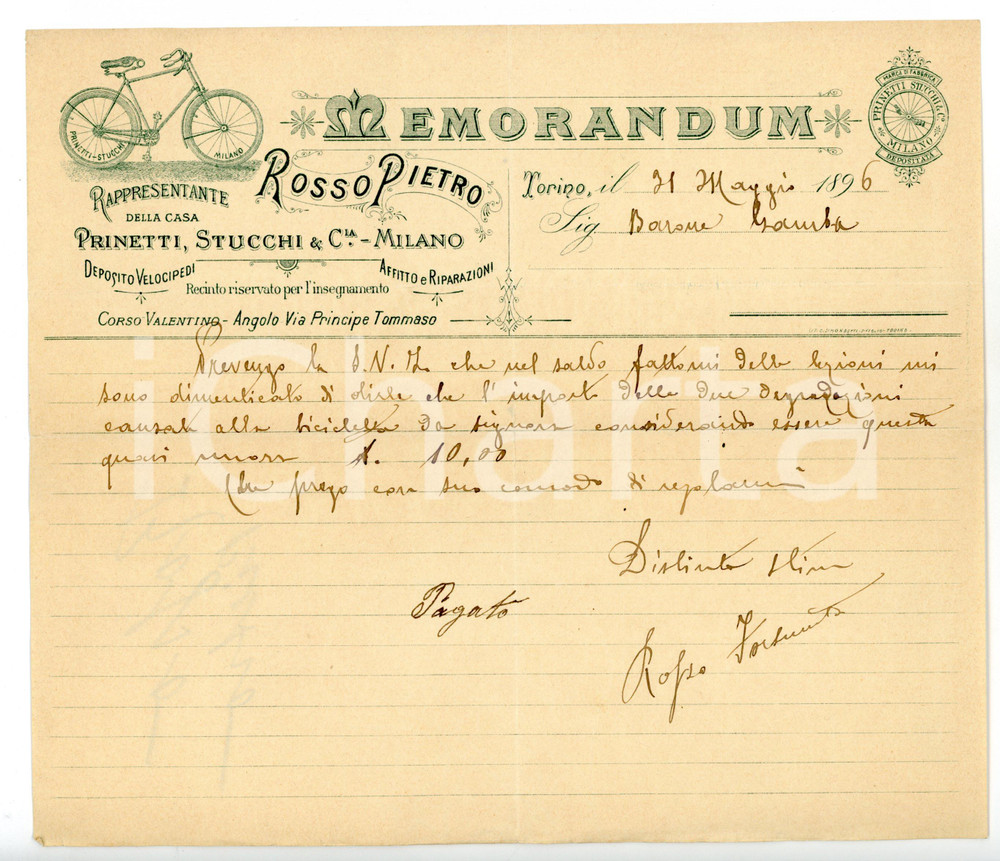 PRINETTI-STUCCHI MILANO
MEMORANDUM
MARCA DI FABBRICA
PRINETTI STUCCHI & Cº
MILANO
DEPOSITATA
RAPPRESENTANTE
DELLA CASA
ROSSO PIETRO
PRINETTI, STUCCHI & CIA - MILANO
DEPOSITO VELOCIPEDI
AFFITTO e RIPARAZIONI
Recinto riservato per l'insegnamento
CORSO VALENTINO - Angolo Via Principe Tommaso
Torino, il 31 Maggio 1896
Sig Barone Gamba
Prevengo la S.V.I. che nel saldo fattomi delle lezioni mi
sono dimenticato di dirle che l'importo delle due degradazioni
causate alla bicicletta da signora considerando essere questa
quasi nuova £. 10,00
La prego con suo comodo di regolarmi
Distinta stima
Pagato
Rosso
iCharta